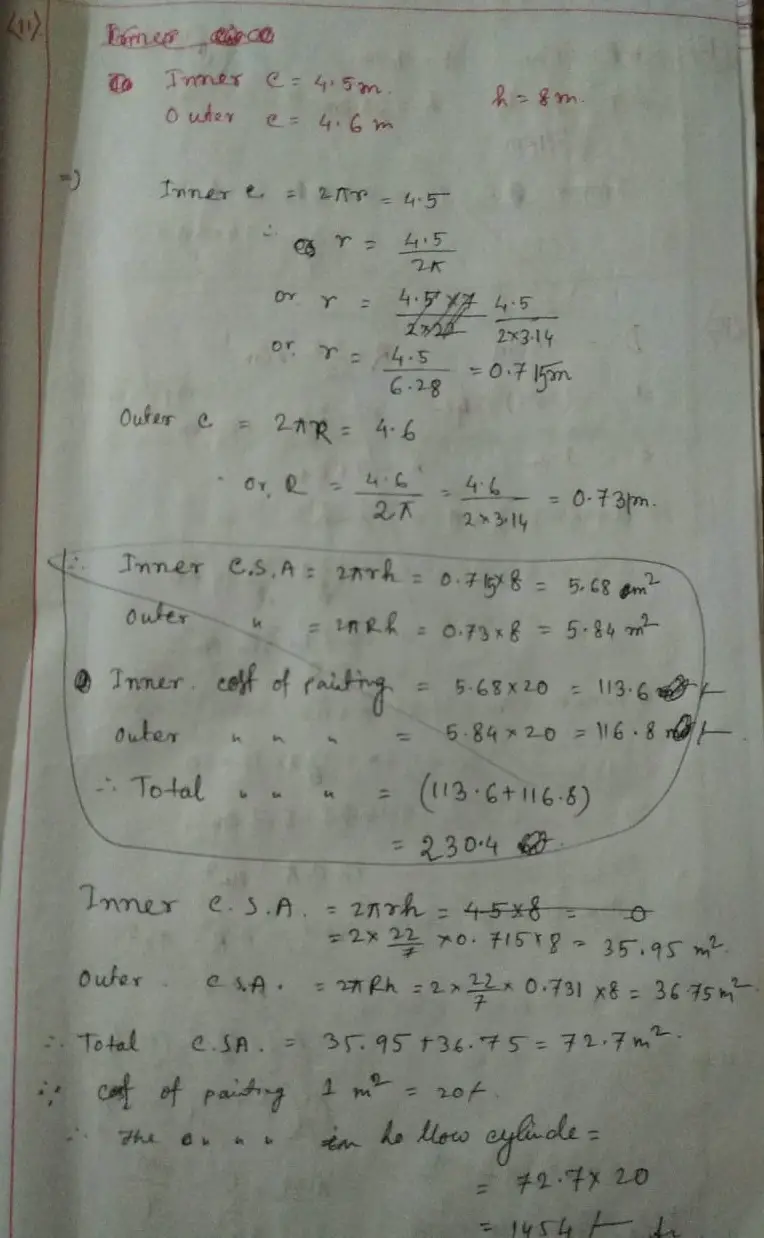 <11>
Inner
Inner C = 4.5m.
h = 8m.
Outer C = 4.6 m
=> Inner C = 2πr = 4.5
∴ r = 4.5/2π
or r = 4.5×7/2×22 4.5/2×3.14
or, r = 4.5/6.28 = 0.715m
Outer C = 2πR = 4.6
or, R = 4.6/2π = 4.6/2×3.14 = 0.731m.
∴ Inner C.S.A = 2πrh = 0.715×8 = 5.68 m²
Outer " = 2πRh = 0.73×8 = 5.84 m²
Inner cost of painting = 5.68×20 = 113.6
Outer " " " = 5.84×20 = 116.8
∴ Total " " " = (113.6+116.8)
= 230.4
Inner C.S.A. = 2πrh = 4.5×8 = 0
= 2× 22/7 ×0.715×8 = 35.95 m².
Outer C.S.A. = 2πRh = 2× 22/7 × 0.731 ×8 = 36.75m².
∴ Total C.SA. = 35.95+36.75 = 72.7m².
∵ cost of painting 1 m² = 20/-
∴ The " " " in hollow cylinde =
= 72.7×20
= 1454/-